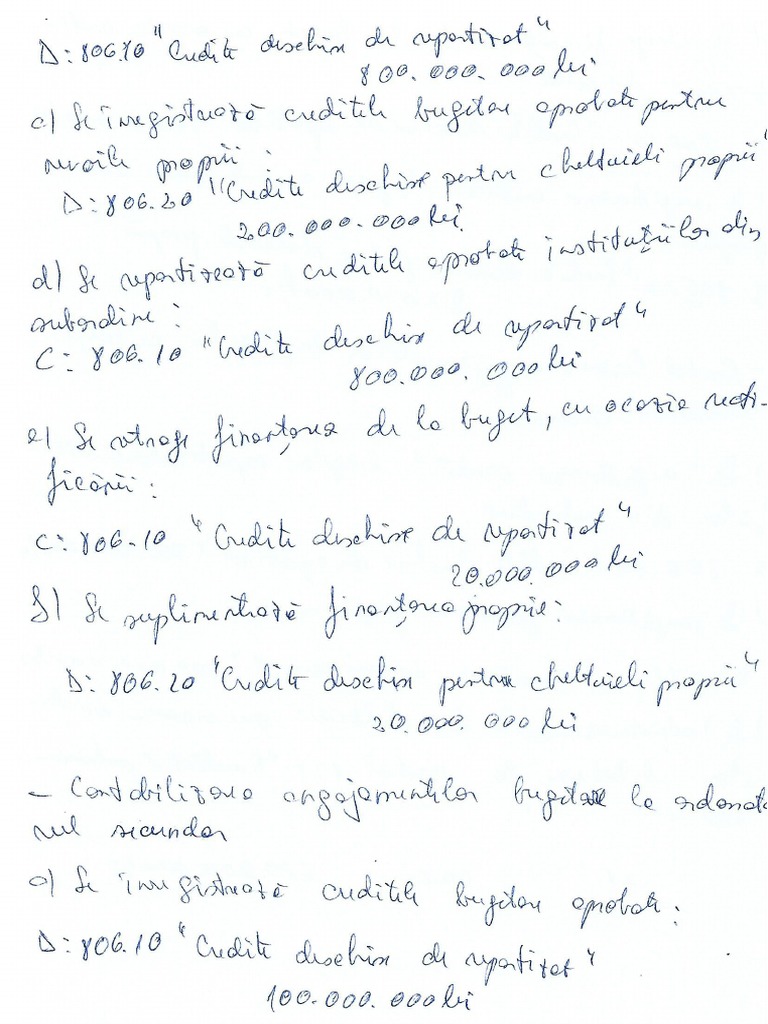 D: 806.10 "Credite deschise de repartizat"
800.000.000 lei
c) Se înregistrează creditele bugetare aprobate pentru
nevoile proprii:
D: 806.20 "Credite deschise pentru cheltuieli proprii"
200.000.000 lei
d) Se repartizează creditele aprobate instituţiilor din
subordine:
C: 806.10 "Credite deschise de repartizat"
800.000.000 lei
e) Se retrage finanţarea de la buget, cu ocazia recti-
ficării:
C: 806.10 "Credite deschise de repartizat"
20.000.000 lei
f) Se suplimentează finanţarea proprie:
D: 806.20 "Credite deschise pentru cheltuieli proprii"
20.000.000 lei
- Contabilizarea angajamentelor bugetare la ordonato
rul secundar
a) Se înregistrează creditele bugetare aprobate:
D: 806.10 "Credite deschise de repartizat"
100.000.000 lei